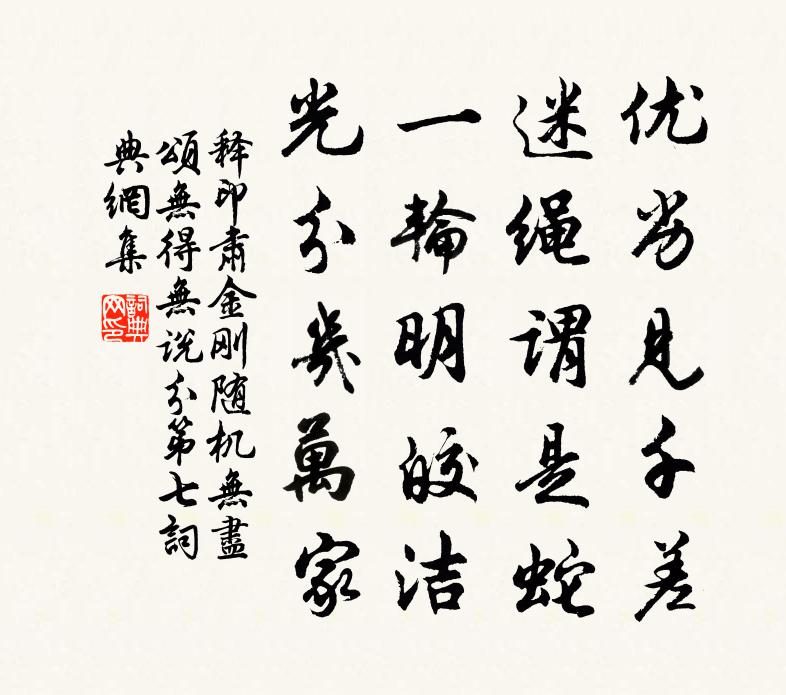 优劣见千差
迷绳谓是蛇
一輪明皎洁
光分幾萬家
释印肃金刚随机無盡
頌無得無説分第七詞
典網集
詞典
网印